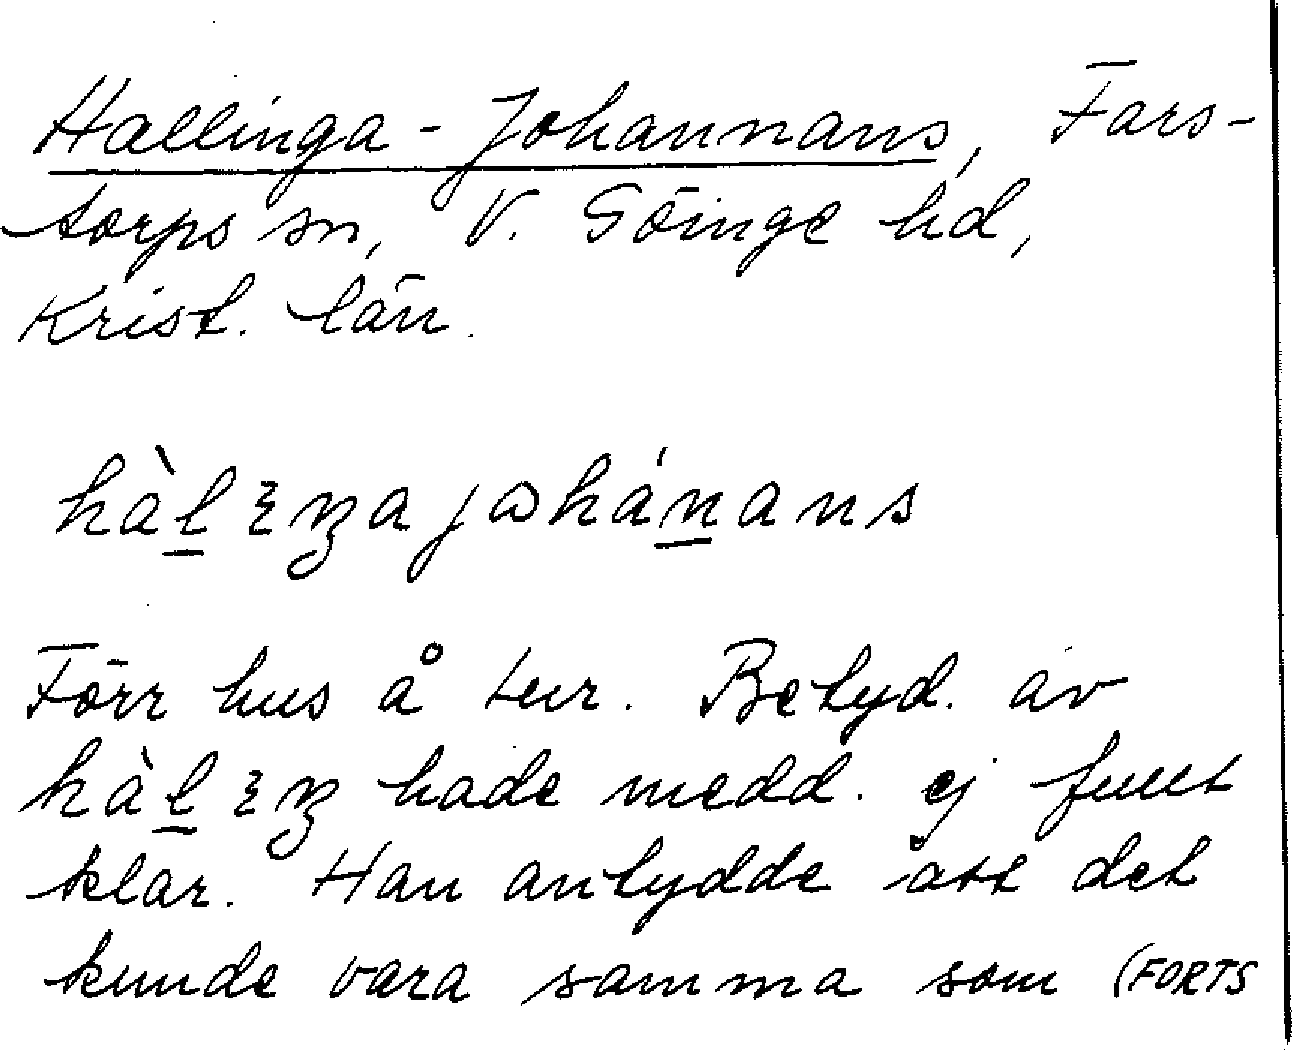 Hallinga-Johannans, Fars-
torps sn, V. Göinge hd,
Krist. län.
hàlɪŋa johánans
Förr hus å ter. Betyd. av
hàlɪŋ hade medd. ej fullt
klar. Han antydde att det
kunde vara samma som (FORTS